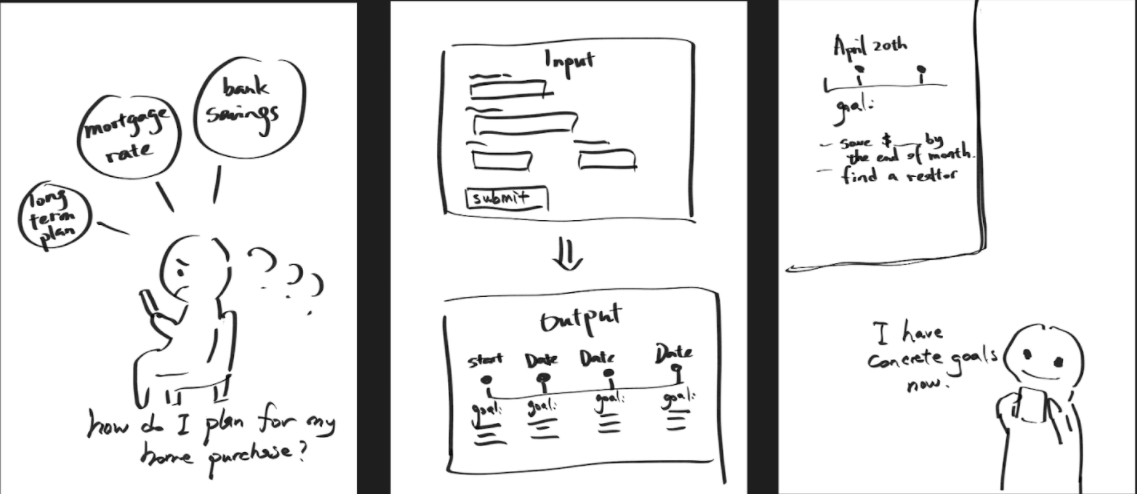 bank
savings
mortgage
rate
long
term
plan
???
how do I plan for my
home purchase?
Input
submit
Output
start Date Date Date
goal: goal: goal: goal:
April 20th
goal:
- save $__ by
the end of month.
- find a realtor
I have
concrete goals
now.